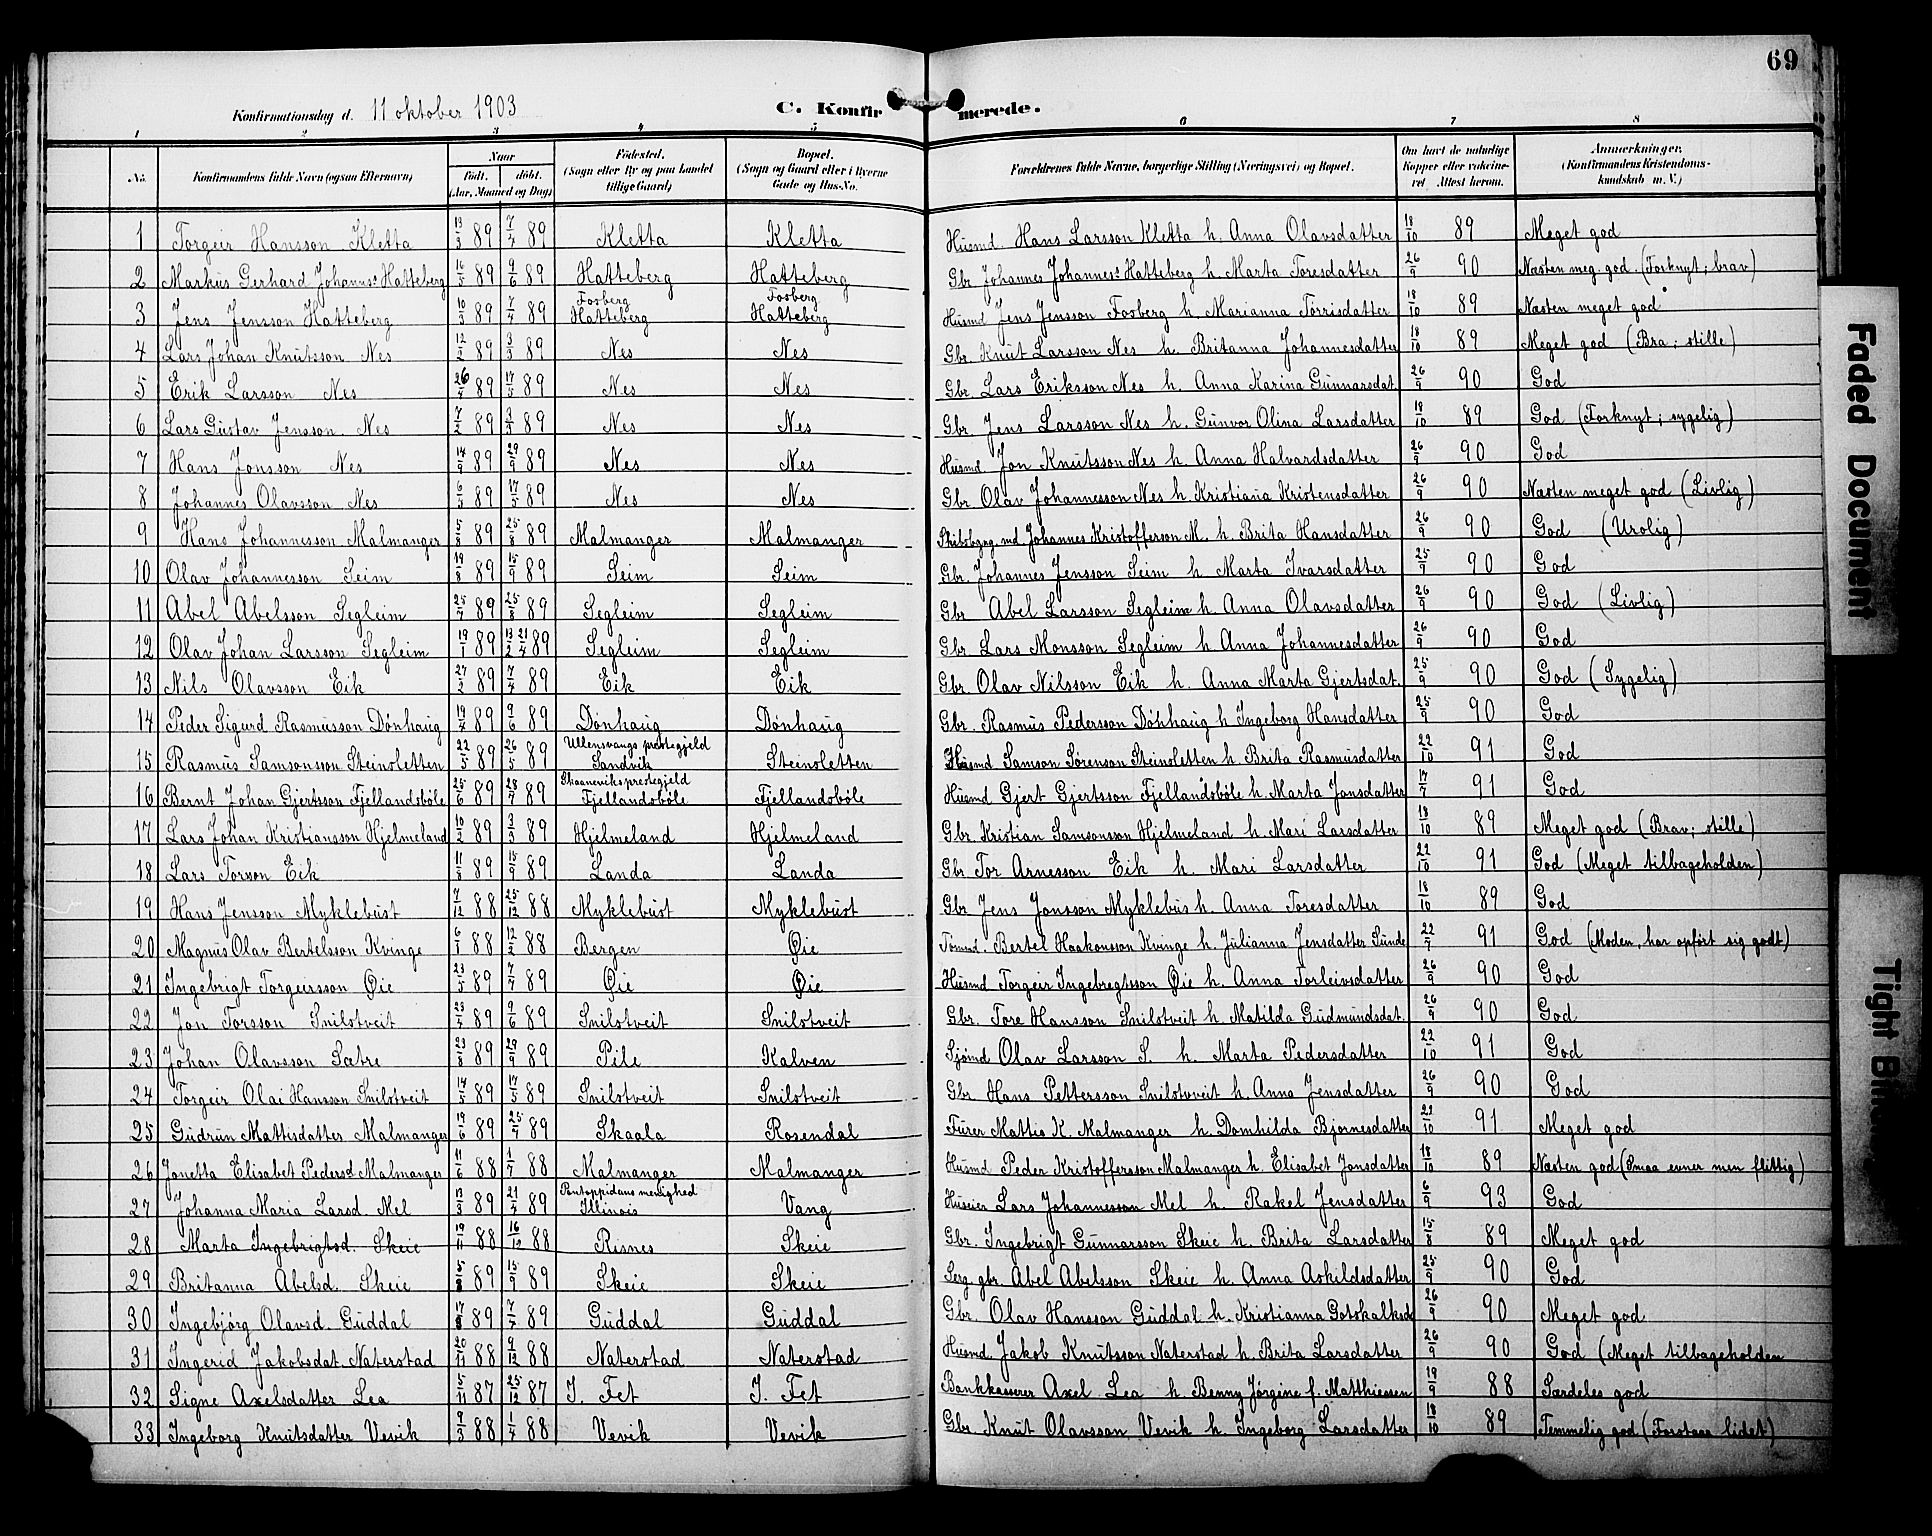 69
Konfirmationsdag d. 11 oktober 1903 C. Konfirmerede.
1 2 3 4 5 6 7 8
No. Konfirmandens fulde Navn (ogsaa Efternavn) Naar født. døbt. (Aar, Maaned og Dag) Fødested. (Sogn eller By og paa Landet tillige Gaard) Bopæl. (Sogn og Gaard eller i Byerne Gade og Hus-No. Forældrenes fulde Navne, borgerlige Stilling (Næringsvei) og Bopæl. Om havt de naturlige Kopper eller vakcineret Attest herom. Anmærkninger. (Konfirmandens Kristendomskundskab m. V.)
1 Torgeir Hansson Kletta 13/3 89 7/4 89 Kletta Kletta Husmd. Hans Larsson Kletta h. Anna Olavsdatter 18/10 89 Meget god
2 Markus Gerhard Johanness Hatteberg 16/5 89 9/6 89 Hatteberg Hatteberg Gbr. Johannes Johanness Hatteberg h. Marta Toresdatter 26/9 90 Næsten meg. god. (Forknyt; brav)
3 Jens Jensson Hatteberg 10/3 89 7/4 89 Fosberg Hatteberg Fosberg Hatteberg Husmd Jens Jensson Fosberg h. Marianna Torrisdatter 18/10 89 Næsten meget god
4 Lars Johan Knutsson Nes 12/2 89 3/3 89 Nes Nes Gbr. Knut Larsson Nes h. Britanna Johannesdatter 18/10 89 Meget god (Bra; stille)
5 Erik Larsson Nes 26/4 89 17/5 89 Nes Nes Gbr. Lars Eriksson Nes h. Anna Karina Gunnarsdat. 26/9 90 God
6 Lars Gustav Jensson Nes 7/2 89 3/3 89 Nes Nes Gbr. Jens Larsson Nes h. Gunvor Olina Larsdatter 18/10 89 God (Forknyt; sygelig)
7 Hans Jonsson Nes 14/9 89 29/9 89 Nes Nes Husmd. Jon Knutsson Nes h. Anna Halvardsdatter 26/9 90 God
8 Johannes Olavsson Nes 6/5 89 17/5 89 Nes Nes Gbr. Olav Johannesson Nes h. Kristiana Kristensdatter 26/9 90 Næsten meget god (Livlig)
9 Hans Johannesson Malmanger 5/8 89 25/8 89 Malmanger Malmanger Skibsbygg.md. Johannes Kristofferson M. h. Brita Hansdatter 26/9 90 God (Urolig)
10 Olav Johannesson Seim 19/8 89 15/9 89 Seim Seim Gbr. Johannes Jensson Seim h. Marta Ivarsdatter 25/9 90 God
11 Abel Abelsson Segleim 25/7 89 25/8 89 Segleim Segleim Gbr Abel Larsson Segleim h. Anna Olavsdatter 26/9 90 God (Livlig)
12 Olav Johan Larsson Segleim 19/1 89 13/2 21/4 89 Segleim Segleim Gbr. Lars Monsson Segleim h. Anna Johannesdatter 26/9 90 God
13 Nils Olavsson Eik 27/2 89 7/4 89 Eik Eik Gbr. Olav Nilsson Eik h. Anna Marta Gjertsdat. 25/9 90 God (Sygelig)
14 Peder Sigurd Rasmusson Dønhaug 19/4 89 9/6 89 Dønhaug Dønhaug Gbr. Rasmus Pedersson Dønhaug h Ingeborg Hansdatter 25/9 90 God
15 Rasmus Samsonsson Steinsletten 22/5 89 26/5 89 Ullensvangs prestegjeld Sandvik Steinsletten Husmd Samson Sørenson Steinsletten h. Brita Rasmusdatter 22/10 91 God
16 Bernt Johan Gjertsson Fjellandsbøle 25/6 89 28/7 89 Skaaneviks prestegjeld Fjellandsbøle Fjellandsbøle Husmd Gjert Gjertsson Fjellandsbøle h. Marta Jonsdatter 17/7 91 God
17 Lars Johan Kristiansson Hjelmeland 10/2 89 3/3 89 Hjelmeland Hjelmeland Gbr. Kristian Samsonsson Hjelmeland h. Mari Larsdatter 18/10 89 Meget god (Brav; stille)
18 Lars Torson Eik 11/8 89 15/9 89 Landa Landa Gbr Tor Arnesson Eik h. Mari Larsdatter 22/10 91 God (Meget tilbageholden)
19 Hans Jensson Myklebust 7/12 88 25/12 88 Myklebust Myklebust Gbr Jens Jonsson Myklebus h. Anna Toresdatter 18/10 89 God
20 Magnus Olav Bertelsson Kvinge 6/1 88 12/2 88 Bergen Øie Tømmd. Bertel Haakonsson Kvinge h. Julianna Jensdatter Sunde 22/7 91 God (Moden, har opført sig godt)
21 Ingebrigt Torgeirsson Øie 23/5 89 7/7 89 Øie Øie Husmd Torgeir Ingebregtsson Øie h. Anna Torleivsdatter 26/9 90 God
22 Jon Torsson Snilstveit 23/4 89 9/6 89 Snilstveit Snilstveit Gbr. Tore Hansson Snilstveit h. Matilda Gudmundsdat. 26/9 90 God
23 Johan Olavsson Sætre 23/8 89 29/9 89 Pile Kalven Sjømd Olav Larsson S. h. Marta Pedersdatter 22/10 91 God
24 Torgeir Olai Hansson Snilstveit 14/5 89 17/5 89 Snilstveit Snilstveit Gbr. Hans Pettersson Snilstvveit h. Anna Jensdatter 26/9 90 God
25 Gudrun Mattisdatter Malmanger 19/6 89 25/7 89 Skaala Rosendal Furer Mattis K. Malmanger h. Domhilda Bjørnesdatter 22/10 91 Meget god
26 Jonetta Elisabet Pedersd Malmanger 11/6 88 1/7 88 Malmanger Malmanger Husmd Peder Kristoffersson Malmanger h. Elisabet Jonsdatter 18/10 89 Næsten god (Smaa evner men flittig)
27 Johanna Maria Larsd. Mel 13/3 89 21/4 89 Pontoppidans menighed Illinois Vang Huseier Lars Johannesson Mel h. Rakel Jensdatter 6/9 93 God
28 Marta Ingebrigtsd. Skeie 19/11 88 16/12 88 Risnes Skeie Gbr. Ingebrigt Gunnarsson Skeie h. Brita Larsdatter 15/8 89 Meget god
29 Britanna Abelsd. Skeie 5/8 89 15/9 89 Skeie Skeie Serg. gbr. Abel Abelsson Skeie h. Anna Askildsdatter 25/9 90 God
30 Ingebjørg Olavsd. Guddal 89 7/7 89 Guddal Guddal Gbr. Olav Hansson Guddal h. Kristianna Gotskalksd 26/9 90 Meget god
31 Ingerid Jakobsdat. Naterstad 20/11 88 9/12 88 Naterstad Naterstad Husmd. Jakob Knutsson Naterstad h. Brita Larsdatter 26/9 90 God (Meget tilbageholden
32 Signe Axelsdatter Lea 5/11 87 25/12 87 I. Fet I. Fet Bankkasserer Axel Lea h Benny Jørgine f. Matthiessen 19/9 88 Særdeles god
33 Ingeborg Knutsdatter Vevik 9/3 88 1/4 88 Vevik Vevik Gbr. Knut Olavsson Vevik h. Ingeborg Larsdatter 18/10 89 Temmelig god (Forstaar lidet)
Faded Document
Tight Bin